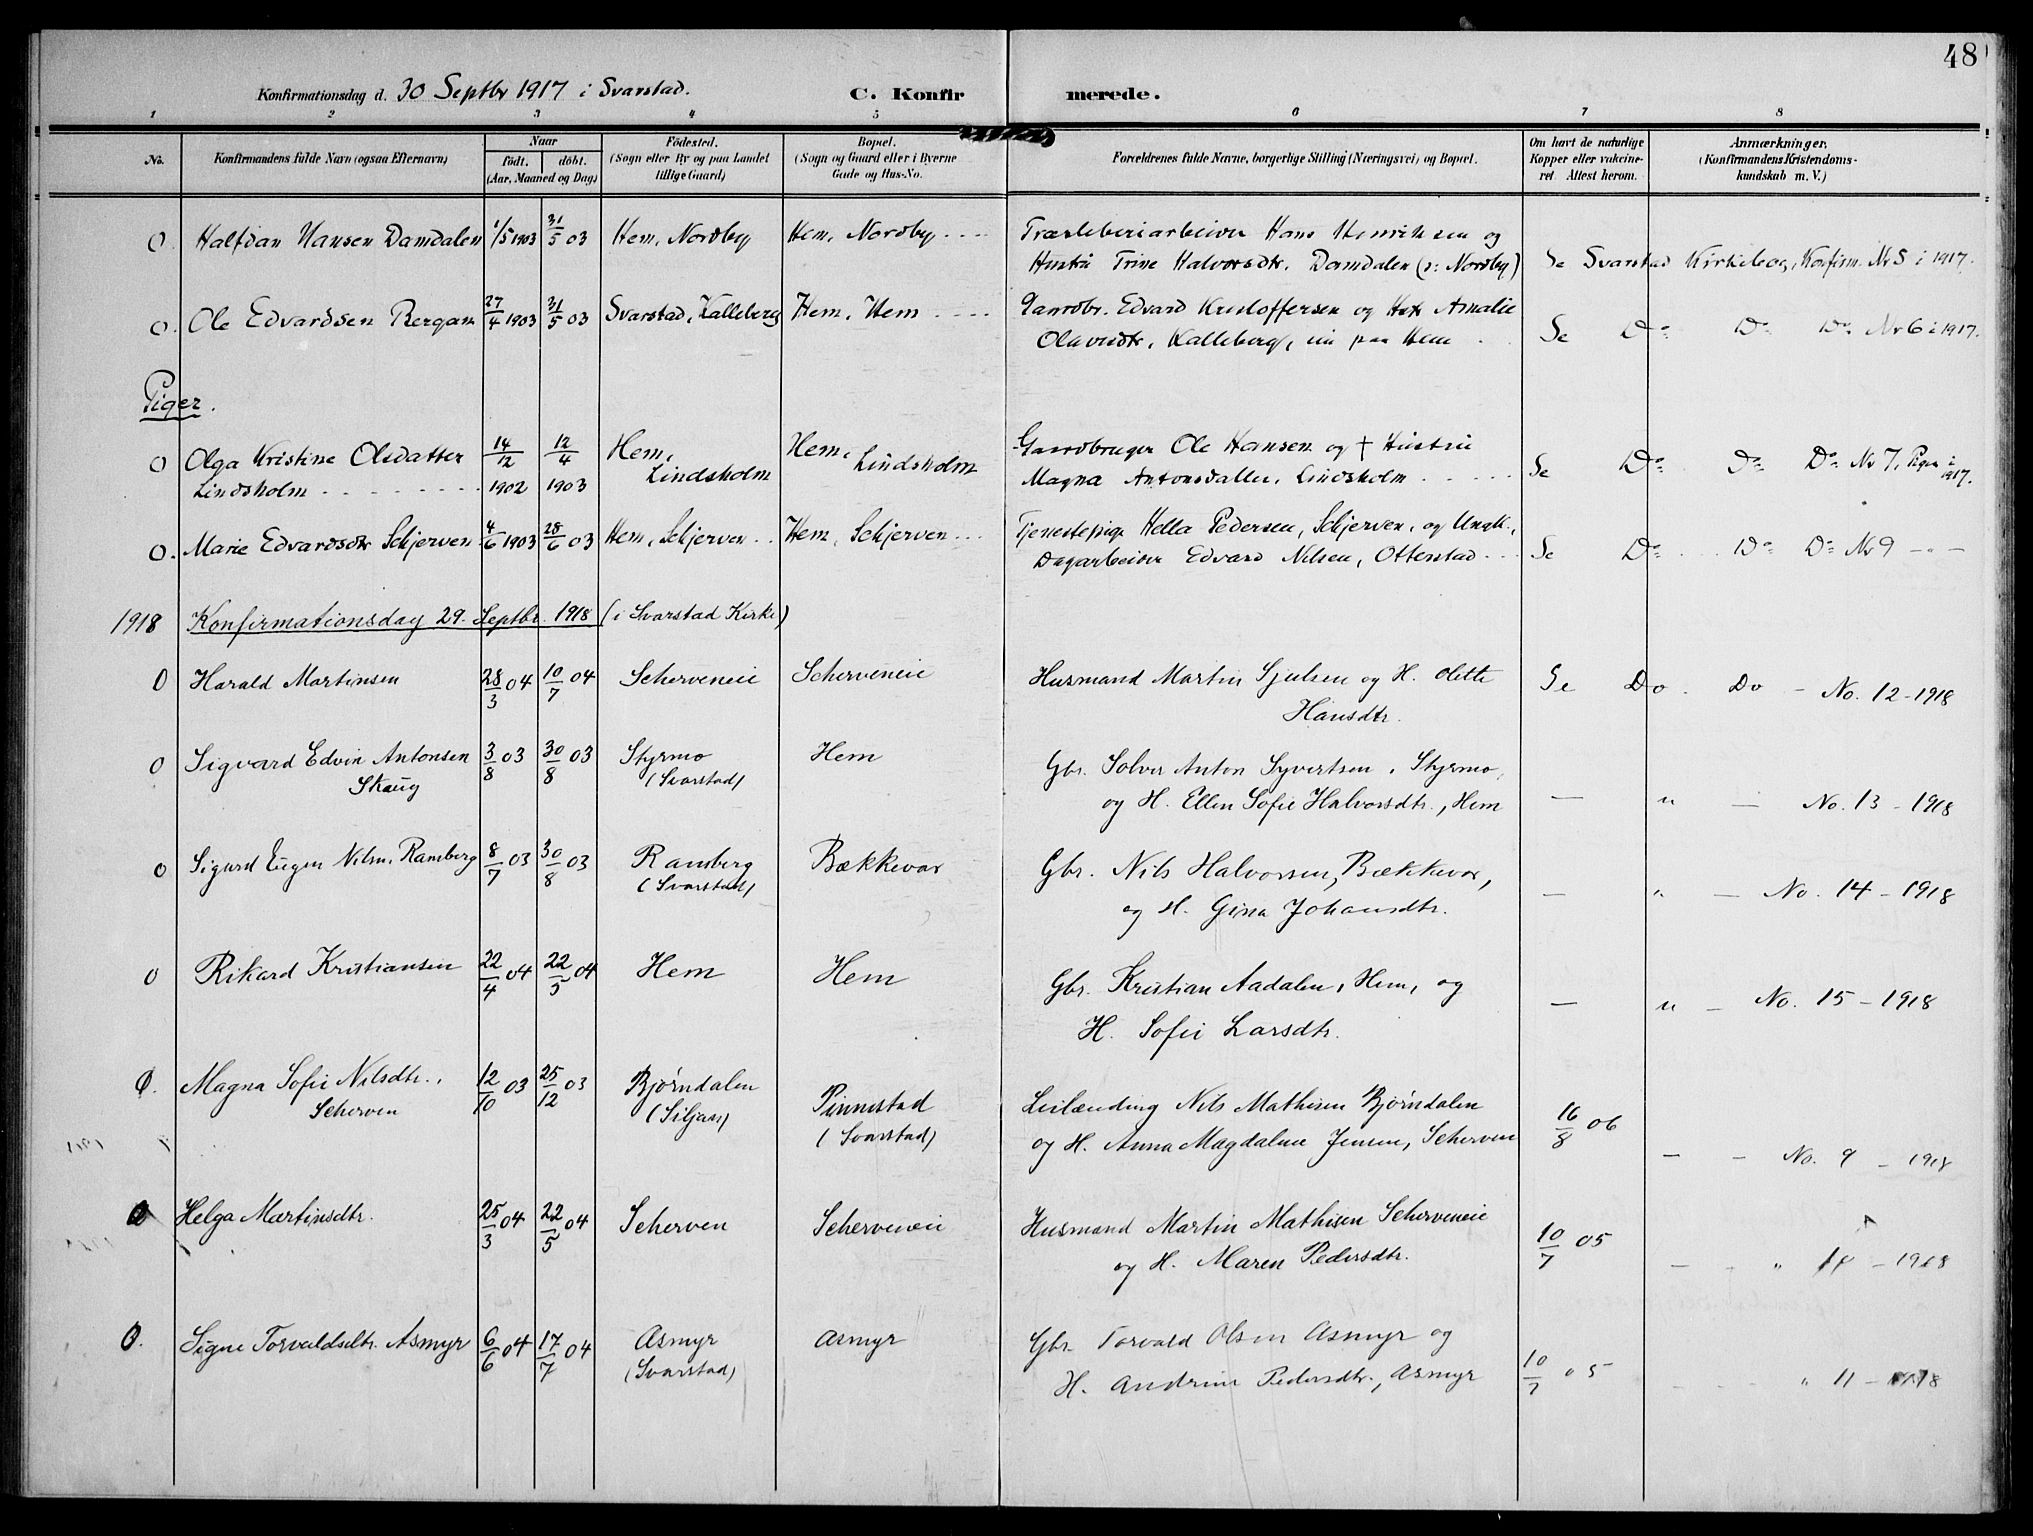 48
Konfirmationsdag d. 30 Septbr 1917 i Svarstad.
C. Konfir
merede.
1 2 3 4 5 6 7 8
No.
Konfirmandens fulde Navn (ogsaa Efternavn)
Naar
født. døbt.
(Aar, Maaned og Dag)
Fødested.
(Sogn eller By og paa Landet
tillige Gaard)
Bopæl.
(Sogn og Gaard eller i Byerne
Gade og Hus-No.
Forældrenes fulde Navne, borgerlige Stilling (Næringsvei) og Bopæl.
Om havt de naturlige
Kopper eller vakcine-
ret Attest herom.
Anmærkninger,
(Konfirmandens Kristendoms-
kundskab m. V.)
O. Halfdan Hansen Damdalen 1/5 1903 31/5 03 Hem, Nordby Hem, Nordby Træsleberiarbeider Hans Henriksen og
Hustru Trine Halvorsdtr. Damdalen (ɔ: Nordby) Se Svarstad Kirkebog, Konfirm. Nr 5 i 1917.
O. Ole Edvardsen Bergan 27/4 1903 31/5 03 Svarstad, Kalleberg Hem, Hem Gaardbr. Edvard Kristoffersen og Hstr Amalie
Olavsdtr, Kalleberg, nu paa Hem Se Do Do Do Nr 6 i 1917.
Piger.
O Olga Kristine Olsdatter 14/12 12/4 Hem, Hem, Gaardbruger Ole Hansen og † Hustru
Lindsholm 1902 1903 Lindsholm Lindsholm Magna Antonsdatter, Lindsholm Se Do Do Do Nr 7, Piger i 1917.
O. Marie Edvardsdtr Schjerven 4/6 1903 28/6 03 Hem, Schjerven Hem, Schjerven Tjenestepige Hella Pedersen, Schjerven, og Ungk.,
Dagarbeider Edvard Nilsen, Otterstad Se Do Do Do Nr 9 - " -
1918 Konfirmationsdag 29. Septbr. 1918 (i Svarstad Kirke)
O Harald Martinsen 28/3 04 10/7 04 Scherveneie Scherveneie Husmand Martin Sjulsen og H. Olette
Hansdtr. Se Do. Do - No. 12 - 1918
O Sigvard Edvin Antonsen 3/8 03 30/8 03 Styrmo Hem Gbr. Solver Anton Syvertsen, Styrmo,
Skaug (Svarstad) og H. Ellen Sofie Halvorsdtr., Hem — " — No. 13 - 1918
O Sigurd Eugen Nilsn. Ramberg 8/7 03 30/8 03 Ramberg Bækkevar Gbr. Nils Halvorsen, Bækkevar,
(Svarstad) og H. Gina Johansdtr. — " — No. 14 - 1918
O Rikard Kristiansen 22/4 04 22/5 04 Hem Hem Gbr. Kristian Aadalen, Hem, og
H. Sofie Larsdtr. — " — No. 15 - 1918
O. Magna Sofie Nilsdtr., 12/10 03 25/12 03 Bjørndalen Pinnestad Leilænding Nils Mathisen Bjørndalen
Scherven (Siljan) (Svarstad) og H. Anna Magdalene Jensen, Scherven 16/8 06 — — No. 9 - 1918
O Helga Martinsdtr. 25/3 04 22/5 04 Scherven Scherveneie Husmand Martin Mathisen Scherveneie
og H. Maren Pedersdtr. 10/7 05 — - " 10 - 1918
O. Signe Torvaldsdtr. Asmyr 6/6 04 17/7 04 Asmyr Asmyr Gbr. Torvald Olsen Asmyr og
(Svarstad) H. Andrine Pedersdtr., Asmyr 10/7 05 - - - " 11 - 1918